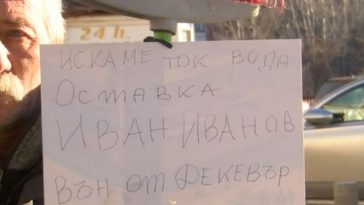 24 ч.
ИСКАМЕ ТОК ВОДА
ОСТАВКА
ИВАН ИВАНОВ
ВЪН ОТ ДКЕВЪР